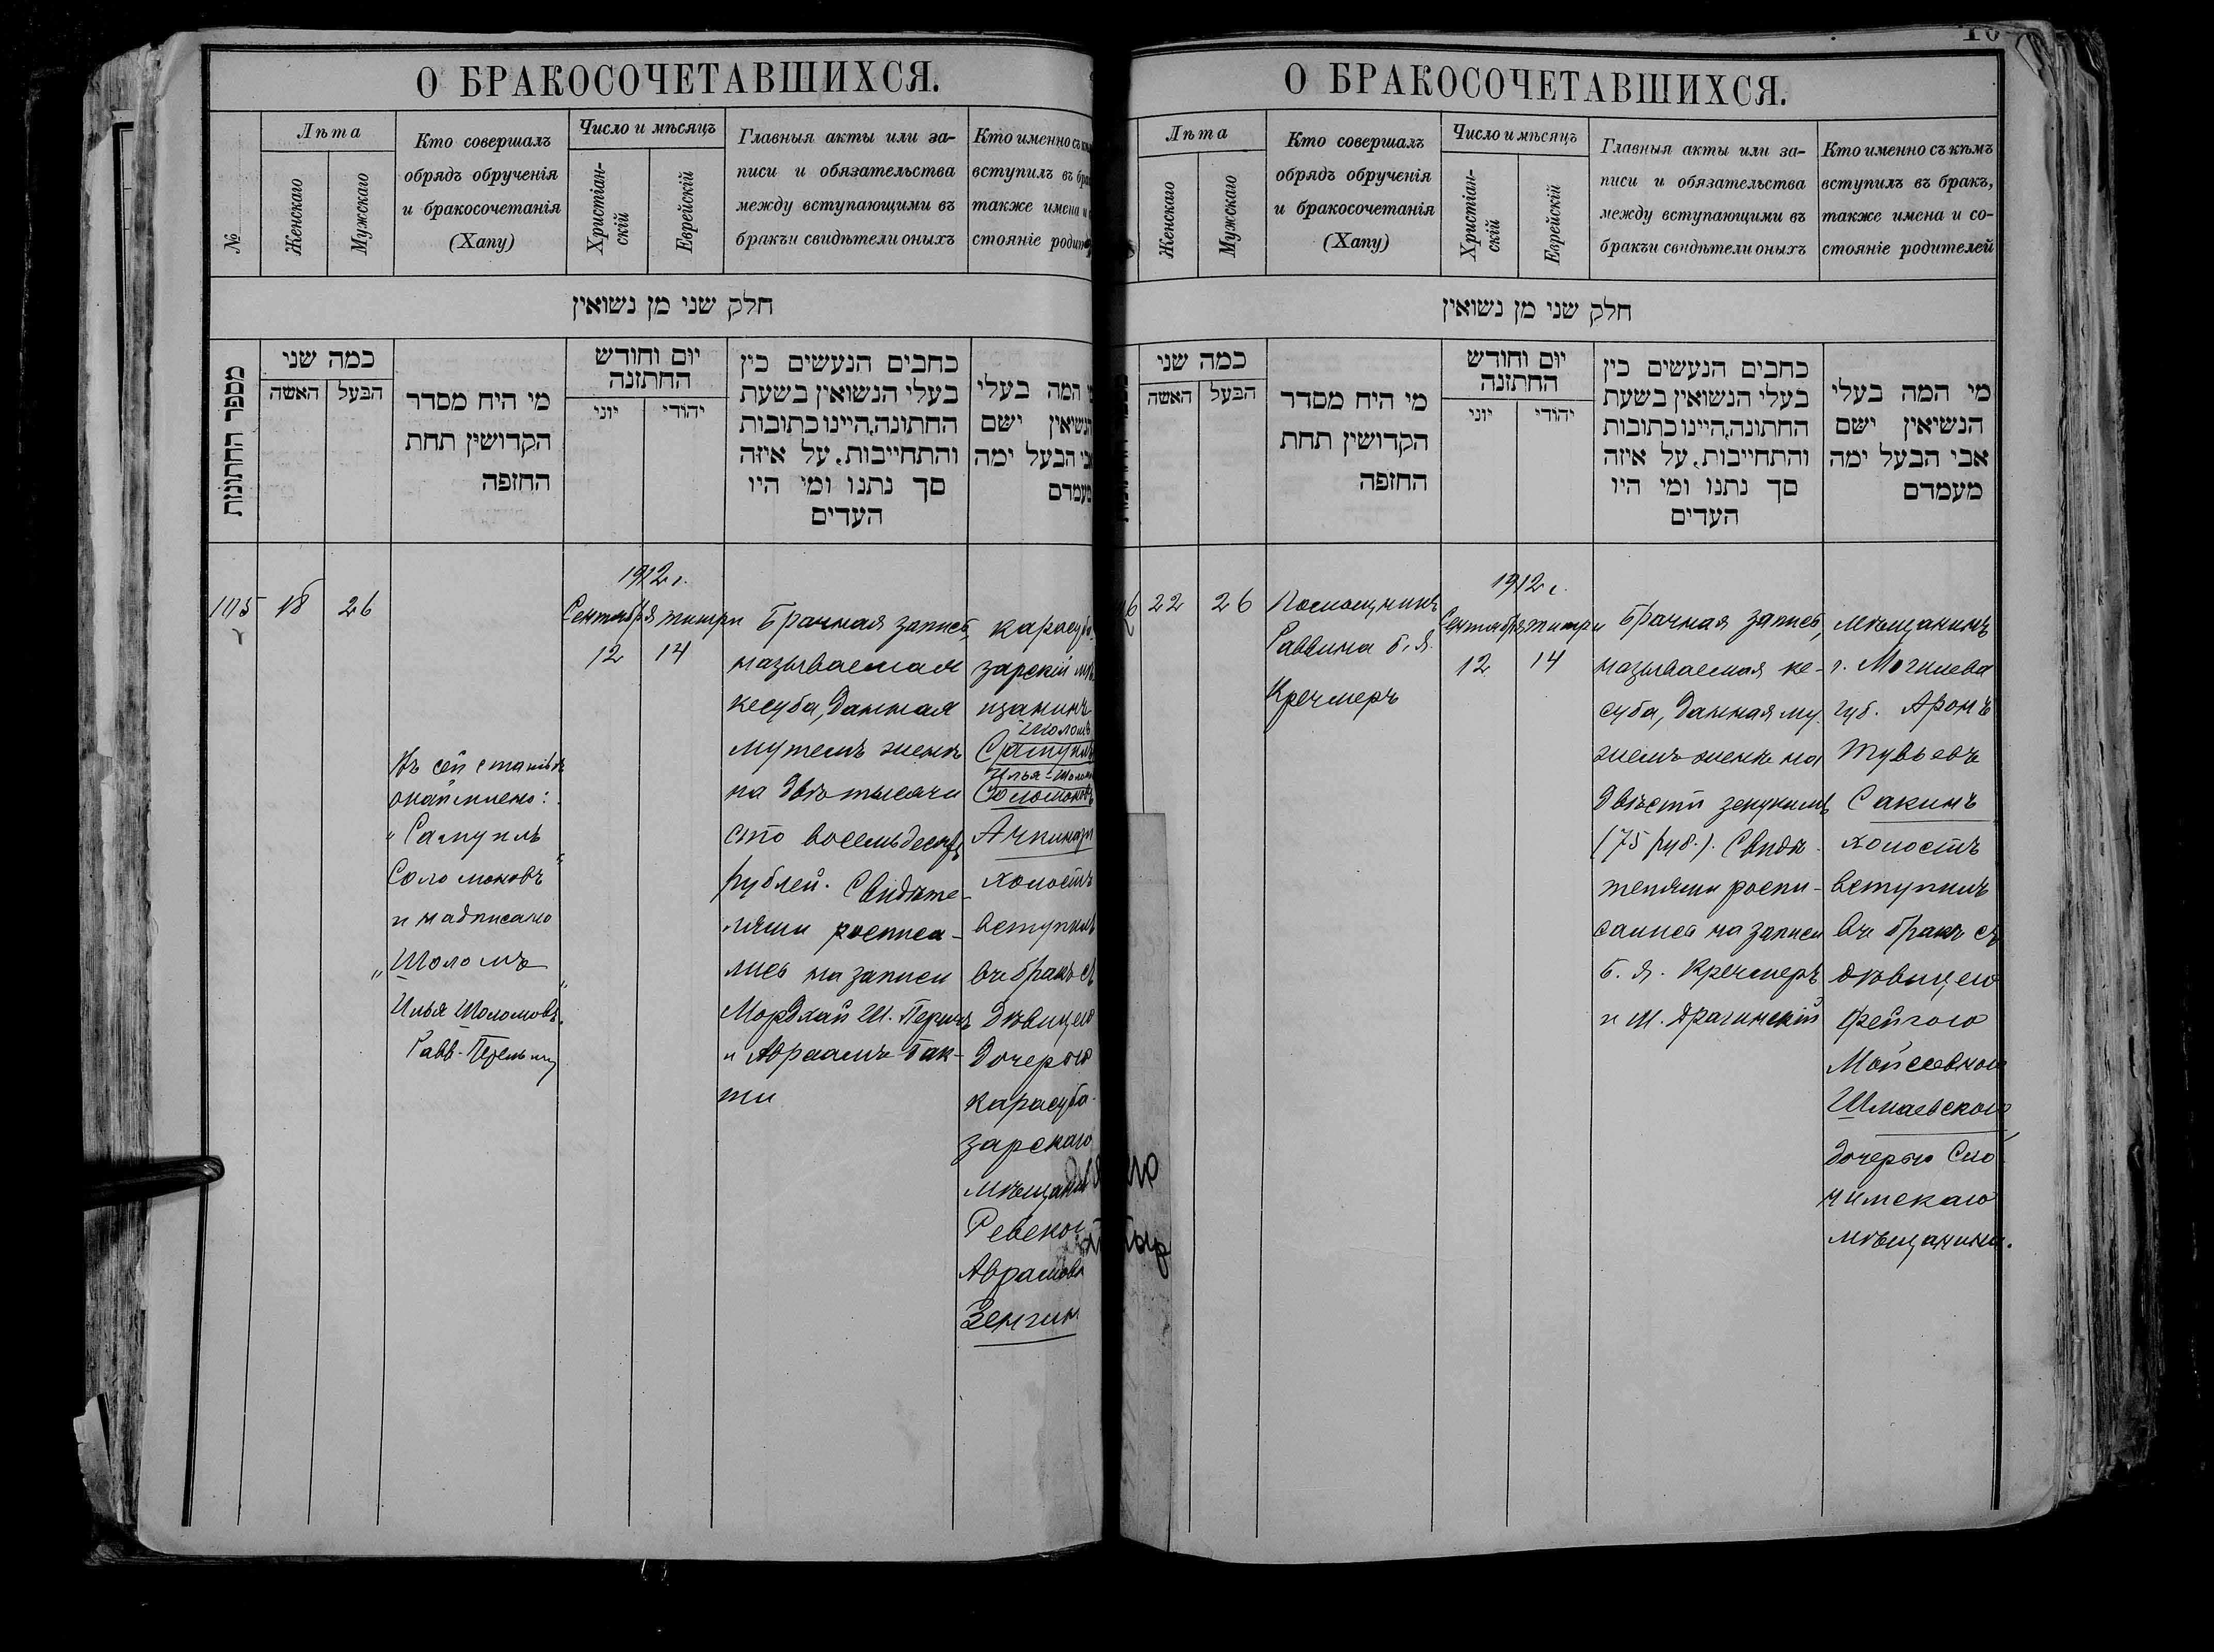 О БРАКОСОЧЕТАВШИХСЯ.
№
Лѣта
Женскаго
Мужскаго
Кто совершалъ
обрядъ обрученія
и бракосочетанія
(Хапу)
Число и мѣсяцъ
Христіан-
скій
Еврейскій
Главныя акты или за-
писи и обязательства
между вступающими въ
бракъ и свидѣтели оныхъ
Кто именно съ
вступилъ въ
также имена и
стояніе
חלק שני מן נשואין
מספר החתונות
כמה שני
האשה
הבעל
מי היח מסדר
הקדושין תחת
החופה
יום וחודש
החתונה
יוני
יהודי
כתבים הנעשים בין
בעלי הנשואין בשעת
החתונה, היינו כתובות
והתחייבות, על איזה
סך נתנו ומי היו
העדים
המה בעלי
הנשיאין ישם
אבי הבעל ימה
מעמדם
105
18
26
Въ сей статьѣ
"Самуилъ
Соломоновъ"
и надписано
"Шоломъ
Илья Шоломовъ"
Равв.
1912 г.
Сентября
тишри
12
14
Брачная запись,
называемая
кесуба, данная
мужемъ женѣ
на двѣ тысячи
сто восемьдесятъ
рублей. Свидѣте-
лями росписа-
лись на записи
Мордхай Ш.
и Авраамъ Бак-
ши
карасуба-
зарскій мѣ
щанинъ
Шоломъ
Самуилъ
Илья-Шоломо
Соломоновъ
Ачкинази
холостъ
вступилъ
въ бракъ съ
дѣвицею
дочерью
карасуба-
зарскаго
мѣщанин
Ревекою
Аврамовн
Зенгин
О БРАКОСОЧЕТАВШИХСЯ.
Лѣта
Женскаго
Мужскаго
Кто совершалъ
обрядъ обрученія
и бракосочетанія
(Хапу)
Число и мѣсяцъ
Христіан-
скій
Еврейскій
Главныя акты или за-
писи и обязательства
между вступающими въ
бракъ и свидѣтели оныхъ
Кто именно съ кѣмъ
вступилъ въ бракъ,
также имена и со-
стояніе родителей
חלק שני מן נשואין
כמה שני
האשה
הבעל
מי היח מסדר
הקדושין תחת
החופה
יום וחודש
החתונה
יוני
יהודי
כתבים הנעשים בין
בעלי הנשואין בשעת
החתונה, היינו כתובות
והתחייבות, על איזה
סך נתנו ומי היו
העדים
מי המה בעלי
הנשיאין ישם
אבי הבעל ימה
מעמדם
22
26
Помощникъ
Раввина Б. Я.
Кречмеръ
1912 г.
Сентября
тишри
12
14
Брачная запись,
называемая ке-
суба, данная му-
жемъ женѣ на
двѣсти зекукимъ
(75 руб.). Свидѣ-
телями роспи-
сались на записи
Б. Я. Кречмеръ
и М. Драгинскій
мѣщанинъ
г. Могилева
губ. Аронъ
Тувьевъ
Сакинъ
холостъ
вступилъ
въ бракъ съ
дѣвицею
Фейгою
Мойсеевною
Шмаевскою
дочерью Сло-
нимскаго
мѣщанина.